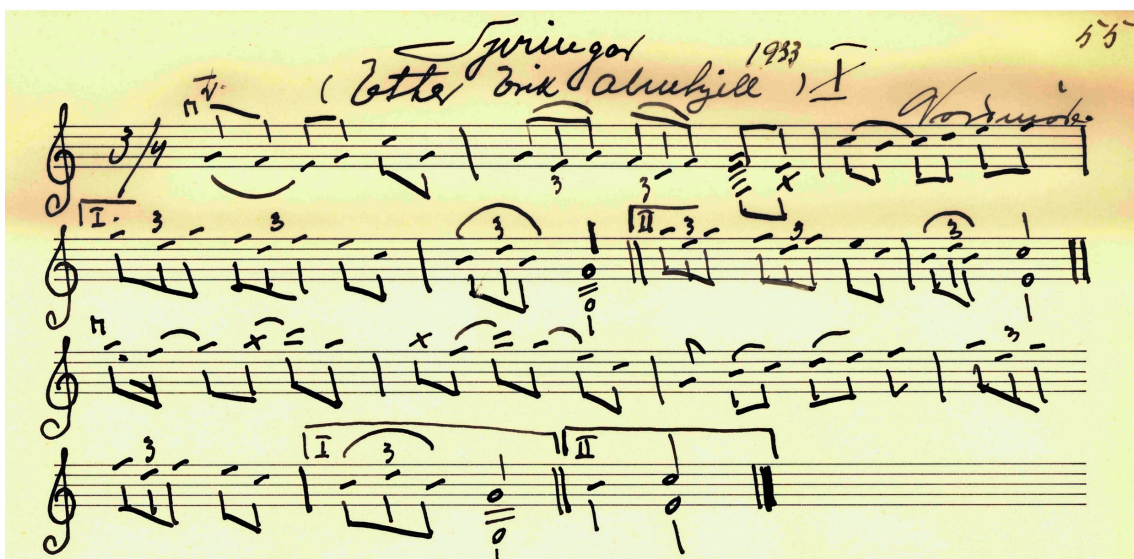 55
Springar
1933
(Etter Erik Almhjell) I
Nordmøre
3/4
3 3
I. 3 3 3 II 3 3 3
3
3 I 3 II